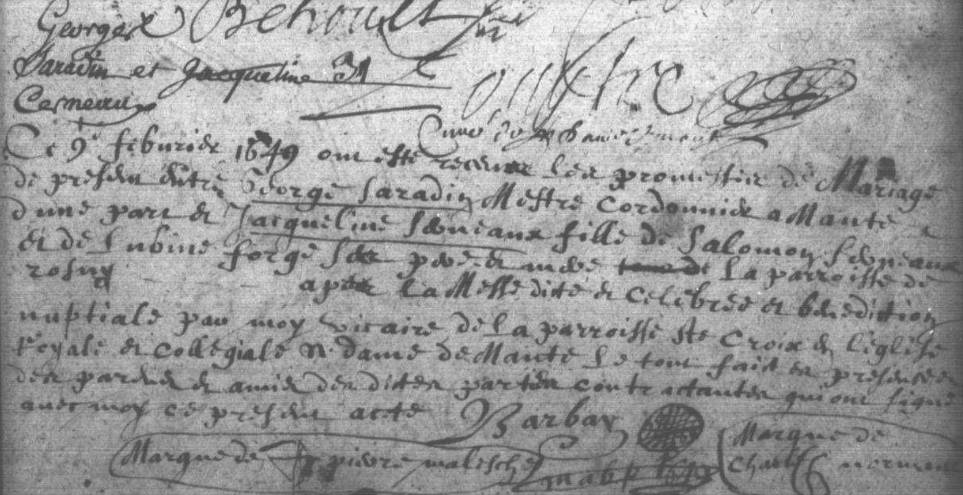 George
Saradin et Jacqueline 31
Cemeaux
Behoult
Curé de
Ce 9e feburier 1649 ont esté receues les promesses de Mariage
de present entre George Saradin Mestre Cordonnier a Mante
d'une part et Jacqueline Semeaux fille de Salomon Semeaux
et de Lubine forge ses pere et mere de La parroisse de
rosny apres La Messe dicte et celebrée et benediction
nuptiale par moy vicaire de La parroisse Ste Croix en l'eglise
Royale et collegiale N. dame de Mante Le tout faict en presence
des parens et amis des dictes parties contractantes qui ont signé
avec moy ce present acte Barbay
Marque de pierre malische
Marque de
Charles